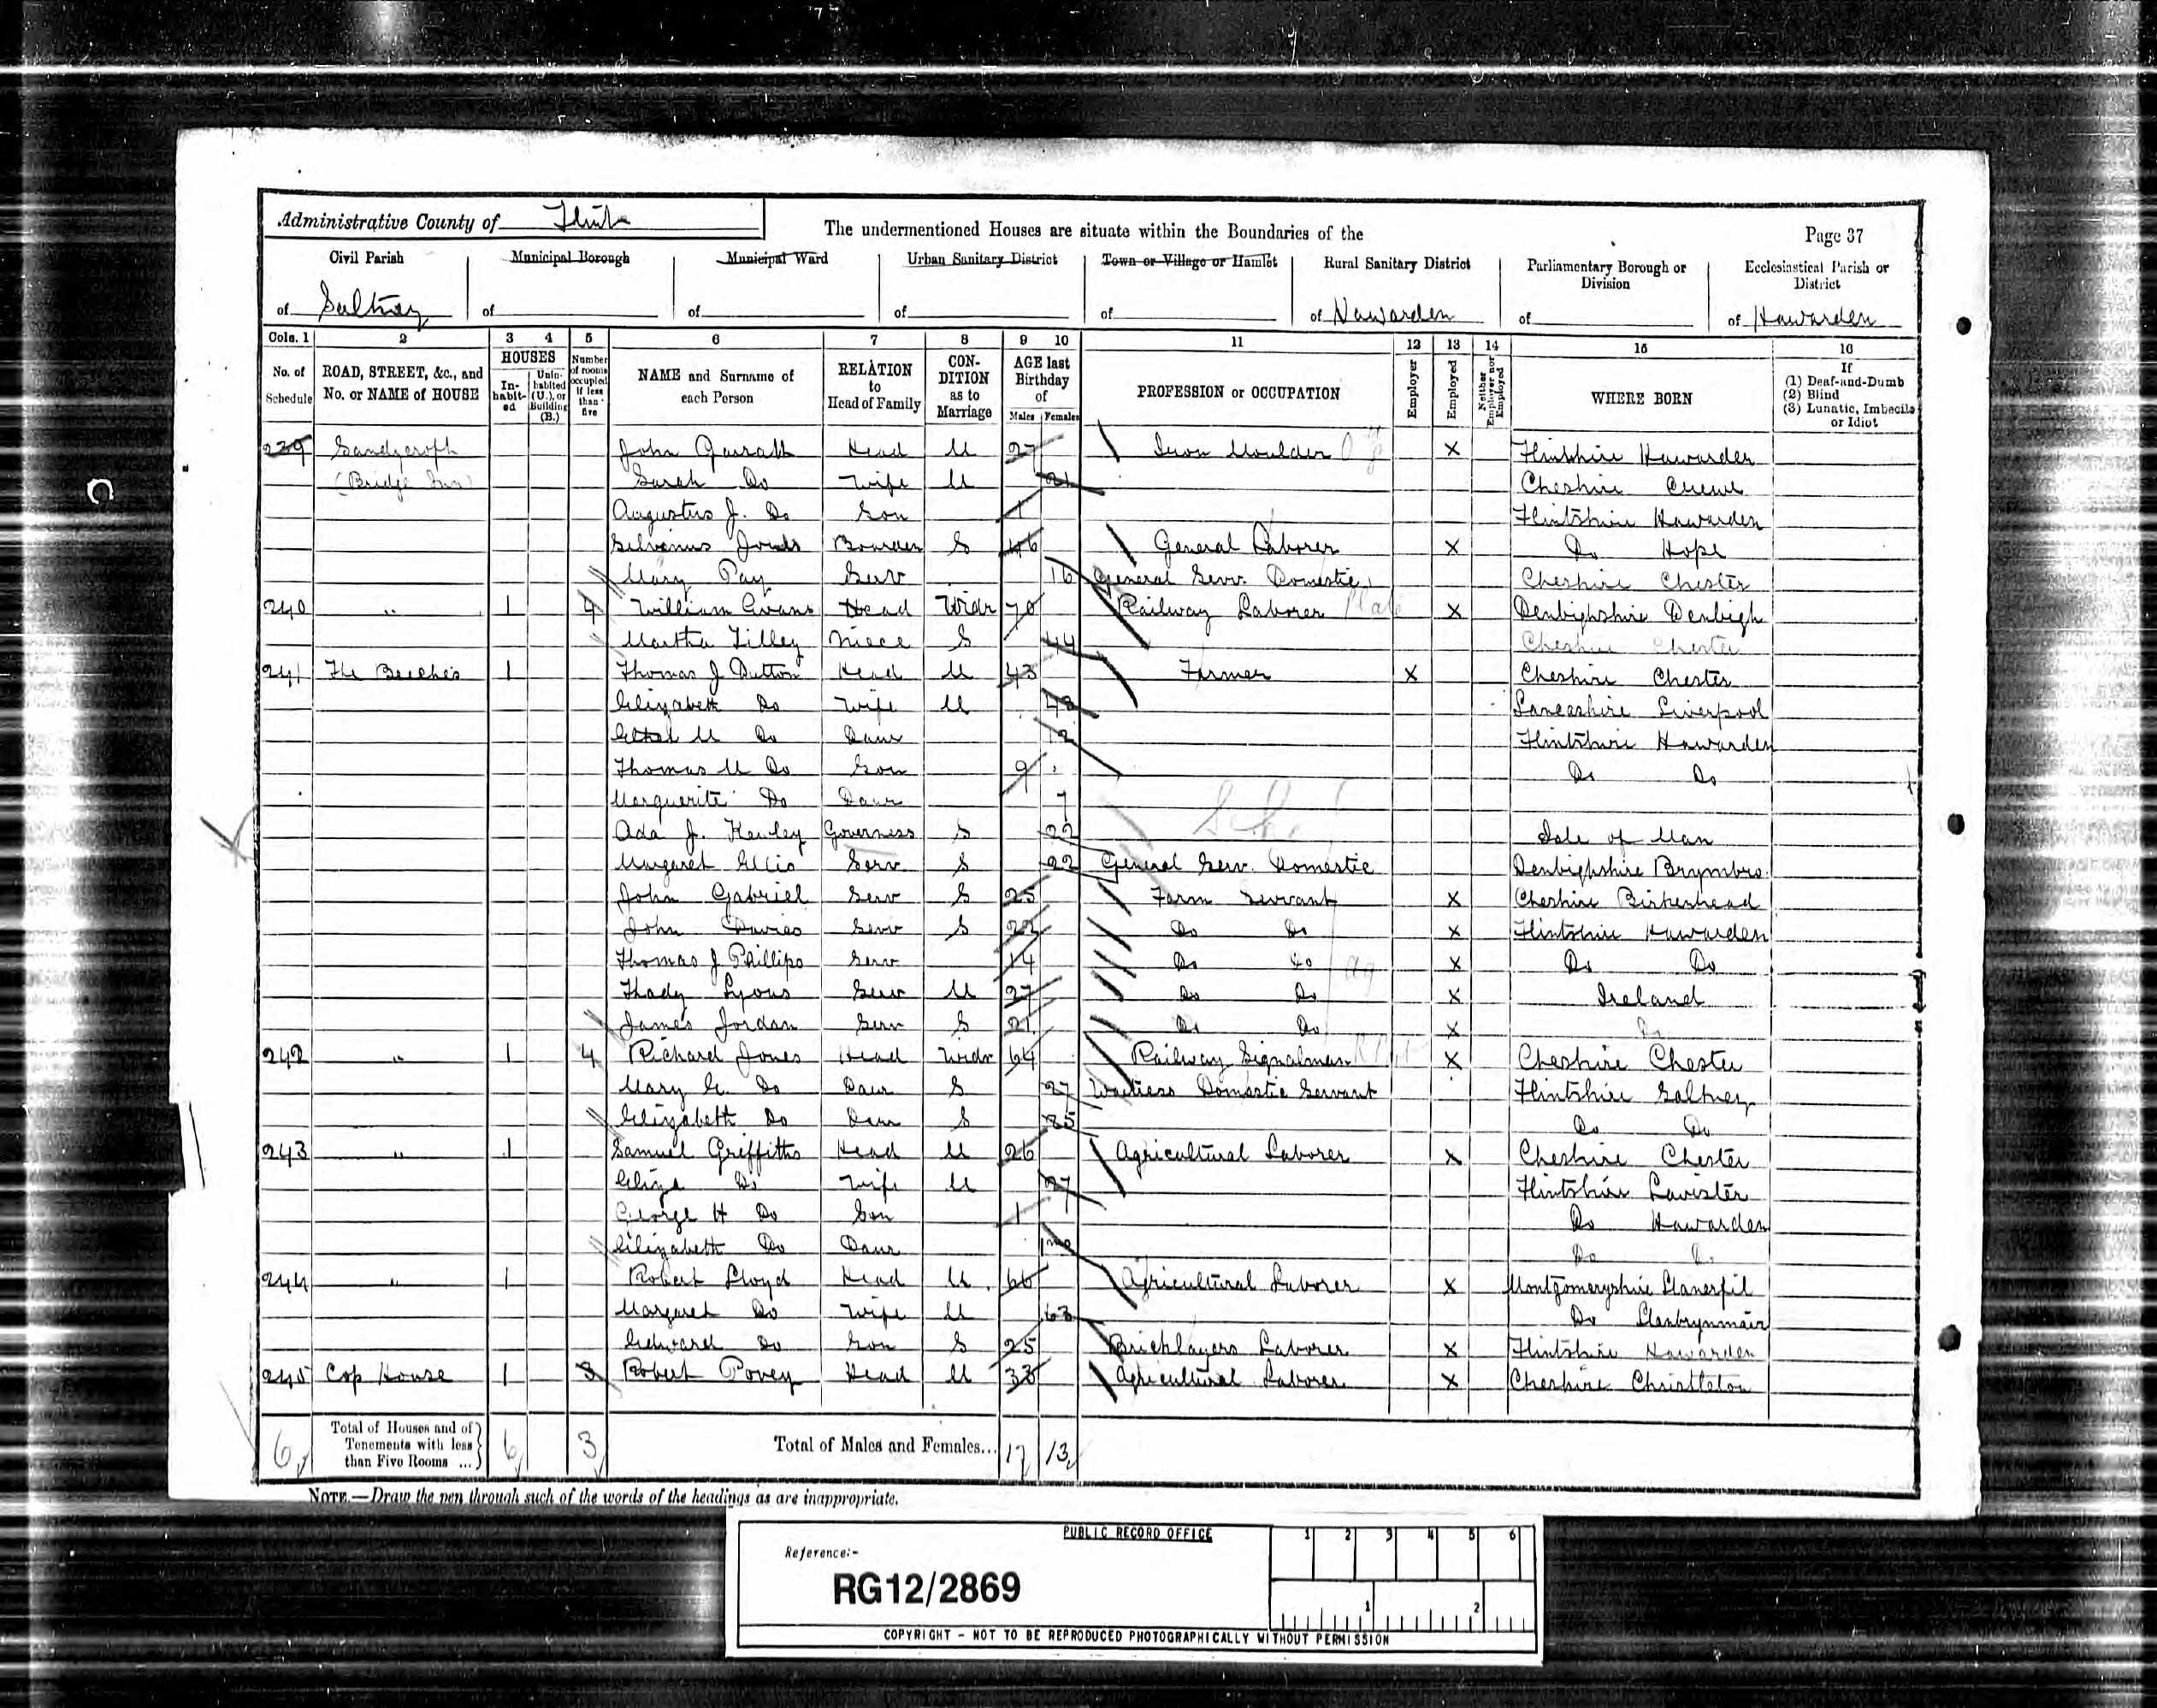 Administrative County of Flint
The undermentioned Houses are situate within the Boundaries of the
Page 37
Civil Parish
Municipal Borough
Municipal Ward
Urban Sanitary District
Town or Village or Hamlet
Rural Sanitary District
Parliamentary Borough or Division
Ecclesiastical Parish or District
of Saltney of of of of of Hawarden of of Hawarden
Cols. 1 2 3 4 5 6 7 8 9 10 11 12 13 14 15 16
No. of Schedule
ROAD, STREET, &c., and No. or NAME of HOUSE
HOUSES
In-habit-ed
Unin-habited (U.), or Building (B.)
Number of rooms occupied if less than five
NAME and Surname of each Person
RELATION to Head of Family
CON-DITION as to Marriage
AGE last Birthday of
Males Females
PROFESSION or OCCUPATION
Employer
Employed
Neither Employer nor Employed
WHERE BORN
If
(1) Deaf-and-Dumb
(2) Blind
(3) Lunatic, Imbecile or Idiot
239 Sandycroft John Garratt Head M 27 Iron Moulder X Flintshire Hawarden
(Bridge Inn) Sarah Do Wife M 21 Cheshire Crewe
Augustus J. Do Son 1 Flintshire Hawarden
Silvanus Jones Boarder S 46 General Laborer X Do Hope
Mary Pay Serv 16 General Serv. Domestic Cheshire Chester
240 " 1 4 William Evans Head Widr 70 Railway Laborer Plate X Denbighshire Denbigh
Martha Tilley Niece S 44 Cheshire Chester
241 The Beeches 1 Thomas J Dutton Head M 43 Farmer X Cheshire Chester
Elizabeth Do Wife M 43 Lancashire Liverpool
Ethel M Do Daur Flintshire Hawarden
Thomas M Do Son 9 Do Do
Marguerite Do Daur 7
Ada J. Kewley Governess S 22 Isle of Man
Margaret Ellis Serv. S 22 General Serv. Domestic Denbighshire Brymbro.
John Gabriel Serv S 25 Farm Servant X Cheshire Birkenhead
John Davies Serv S 22 Do Do X Flintshire Hawarden
Thomas J Phillips Serv 14 Do Do Ag X Do Do
Thady Lyons Serv M 27 Do Do X Ireland
James Jordan Serv S 21 Do Do X Do
242 " 1 4 Richard Jones Head Widr 64 Railway Signalman X Cheshire Chester
Mary E. Do Daur S 27 Waitress Domestic Servant Flintshire Saltney
Elizabeth Do Daur S 25 Do Do
243 " 1 Samuel Griffiths Head M 26 Agricultural Laborer X Cheshire Chester
Eliza Do Wife M 27 Flintshire Lavister
George H Do Son 1 Do Hawarden
Elizabeth Do Daur 1mo Do Do
244 " 1 Robert Lloyd Head M 66 Agricultural Laborer X Montgomeryshire Llanerfil
Margaret Do Wife M 63 Do Llanbrynmair
Edward Do Son S 25 Bricklayers Laborer X Flintshire Hawarden
245 Cop House 1 3 Robert Povey Head M 33 Agricultural Laborer X Cheshire Christleton
6 Total of Houses and of Tenements with less than Five Rooms ... 6 3 Total of Males and Females... 17 13
NOTE.—Draw the pen through such of the words of the headings as are inappropriate.
PUBLIC RECORD OFFICE
1 2 3 4 5 6
Reference:-
RG12/2869
1 2
COPYRIGHT - NOT TO BE REPRODUCED PHOTOGRAPHICALLY WITHOUT PERMISSION